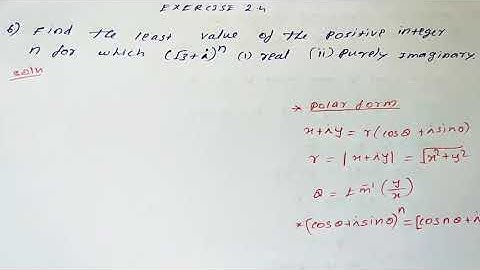 EXERCISE 2.4
6) Find the least value of the positive integer
n for which (√3+i)ⁿ (i) real (ii) purely imaginary
soln
* Polar form
x+iy = r(cosθ + isinθ)
r = |x+iy| = √x²+y²
θ = tan⁻¹(y/x)
*(cosθ+isinθ)ⁿ=[cosnθ+i